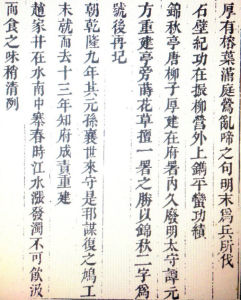 厚有榕葉滿庭鶯亂啼之句明末為兵所伐
石壁紀功在振柳營外上鐫平蠻功績
錦秋亭唐柳子厚建在府署內久廢明太守譚元
方重建亭旁蒔花草擅一署之勝以錦秋二字為
號後再圮
朝乾隆九年其元孫襄世來守是邦謀復之鳩工
未就而去十三年知府成貴重建
趙家井在水南中寨春時江水漲發濁不可飲汲
而食之味稍清冽